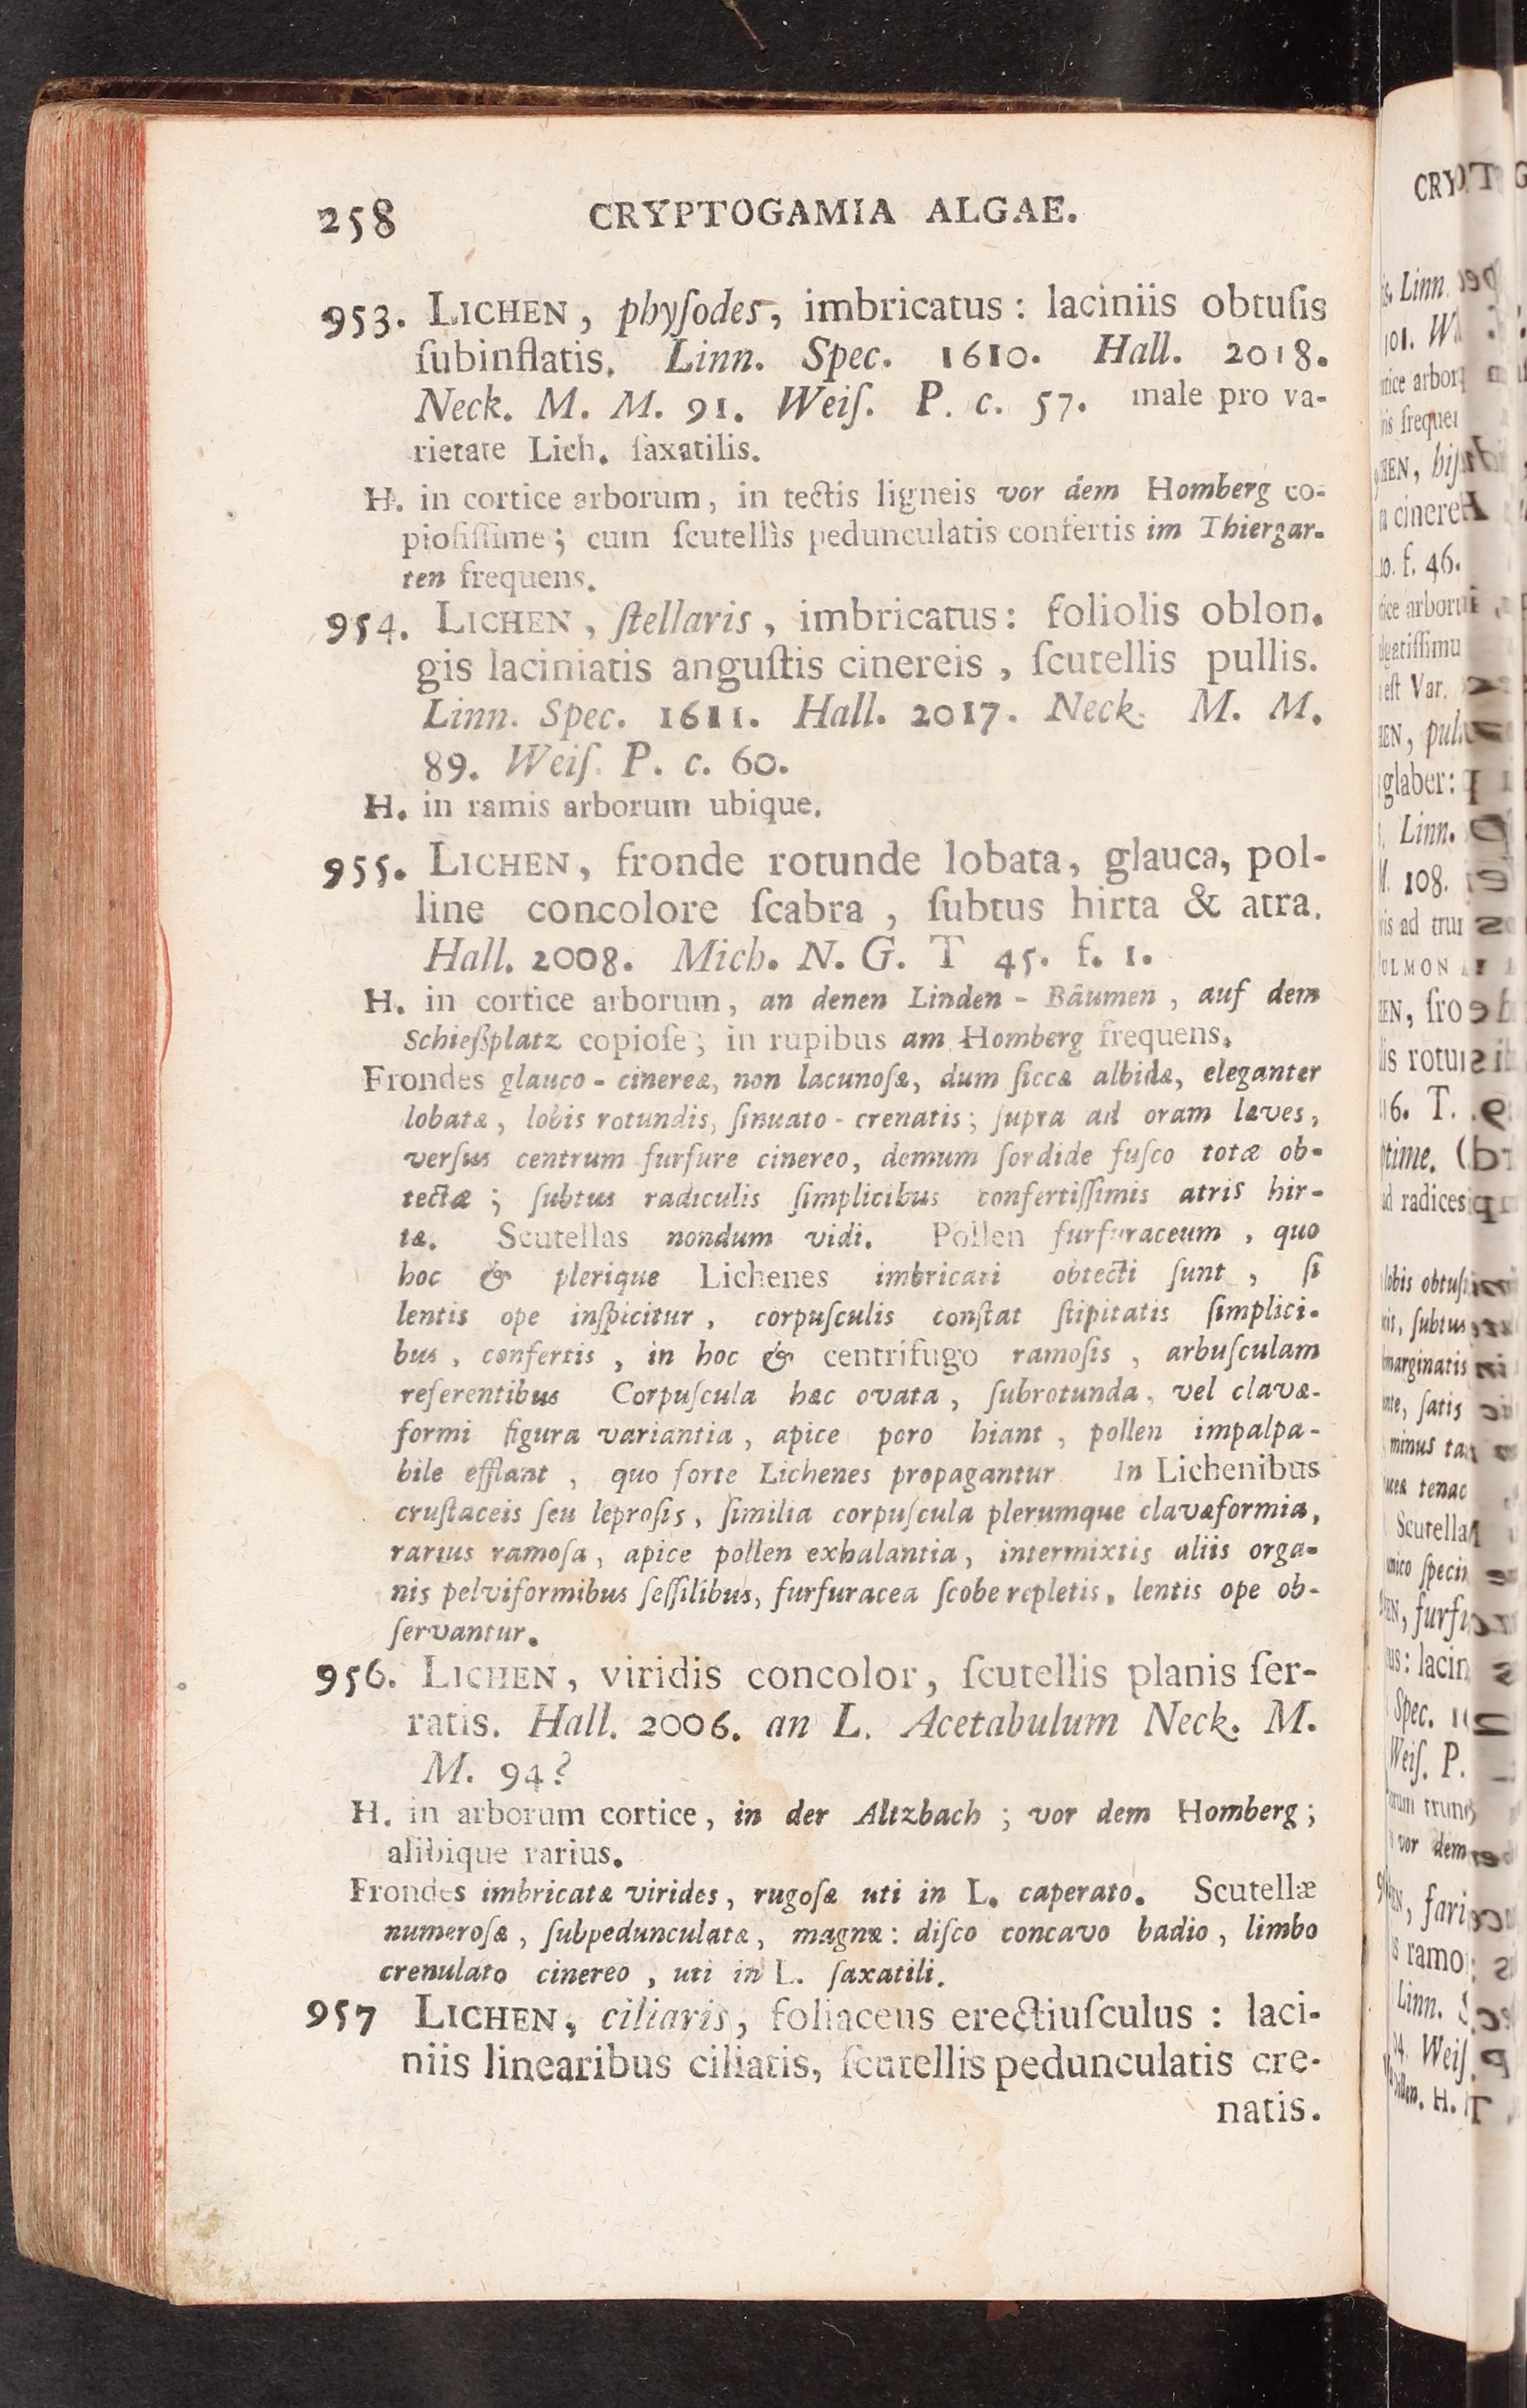 258 CRYPTOGAMIA ALGAE.
953. LICHEN, phyſodes, imbricatus: laciniis obtuſis
ſubinflatis. Linn. Spec. 1610. Hall. 2018.
Neck. M. M. 91. Weiſ. P. c. 57. male pro va-
rietate Lich. ſaxatilis.
H. in cortice arborum, in tectis ligneis vor dem Homberg co-
pioſiſſime; cum ſcutellis pedunculatis confertis im Thiergar-
ten frequens.
954. LICHEN, ſtellaris, imbricatus: foliolis oblon.
gis laciniatis anguſtis cinereis, ſcutellis pullis.
Linn. Spec. 1611. Hall. 2017. Neck. M. M.
89. Weiſ. P. c. 60.
H. in ramis arborum ubique.
955. LICHEN, fronde rotunde lobata, glauca, pol-
line concolore ſcabra, ſubtus hirta & atra.
Hall. 2008. Mich. N. G. T 45. f. 1.
H. in cortice arborum, an denen Linden-Bäumen, auf dem
Schießplatz copioſe; in rupibus am Homberg frequens.
Frondes glauco-cinereæ, non lacunoſæ, dum ſiccæ albidæ, eleganter
lobatæ, lobis rotundis, ſinuato-crenatis; ſupra ad oram læves,
verſus centrum furfure cinereo, demum ſordide fuſco totæ ob-
tectæ; ſubtus radiculis ſimplicibus confertiſſimis atris hir-
tæ. Scutellas nondum vidi. Pollen furfuraceum, quo
hoc & plerique Lichenes imbricati obtecti ſunt, ſi
lentis ope inſpicitur, corpuſculis conſtat ſtipitatis ſimplici-
bus, confertis, in hoc & centrifugo ramoſis, arbuſculam
referentibus Corpuſcula hæc ovata, ſubrotunda, vel clavæ-
formi figura variantia, apice poro hiant, pollen impalpa-
bile efflant, quo forte Lichenes propagantur In Lichenibus
cruſtaceis ſeu leproſis, ſimilia corpuſcula plerumque clavæformia,
rarius ramoſa, apice pollen exhalantia, intermixtis aliis orga-
nis pelviformibus ſeſſilibus, furfuracea ſcobe repletis, lentis ope ob-
ſervantur.
956. LICHEN, viridis concolor, ſcutellis planis ſer-
ratis. Hall. 2006. an L. Acetabulum Neck. M.
M. 94?
H. in arborum cortice, in der Altzbach; vor dem Homberg;
alibique rarius.
Frondes imbricatæ virides, rugoſæ uti in L. caperato. Scutellæ
numeroſæ, ſubpedunculatæ, magnæ: diſco concavo badio, limbo
crenulato cinereo, uti in L. ſaxatili.
957 LICHEN, ciliaris, foliaceus erectiuſculus: laci-
niis linearibus ciliatis, ſcutellis pedunculatis cre-
natis.